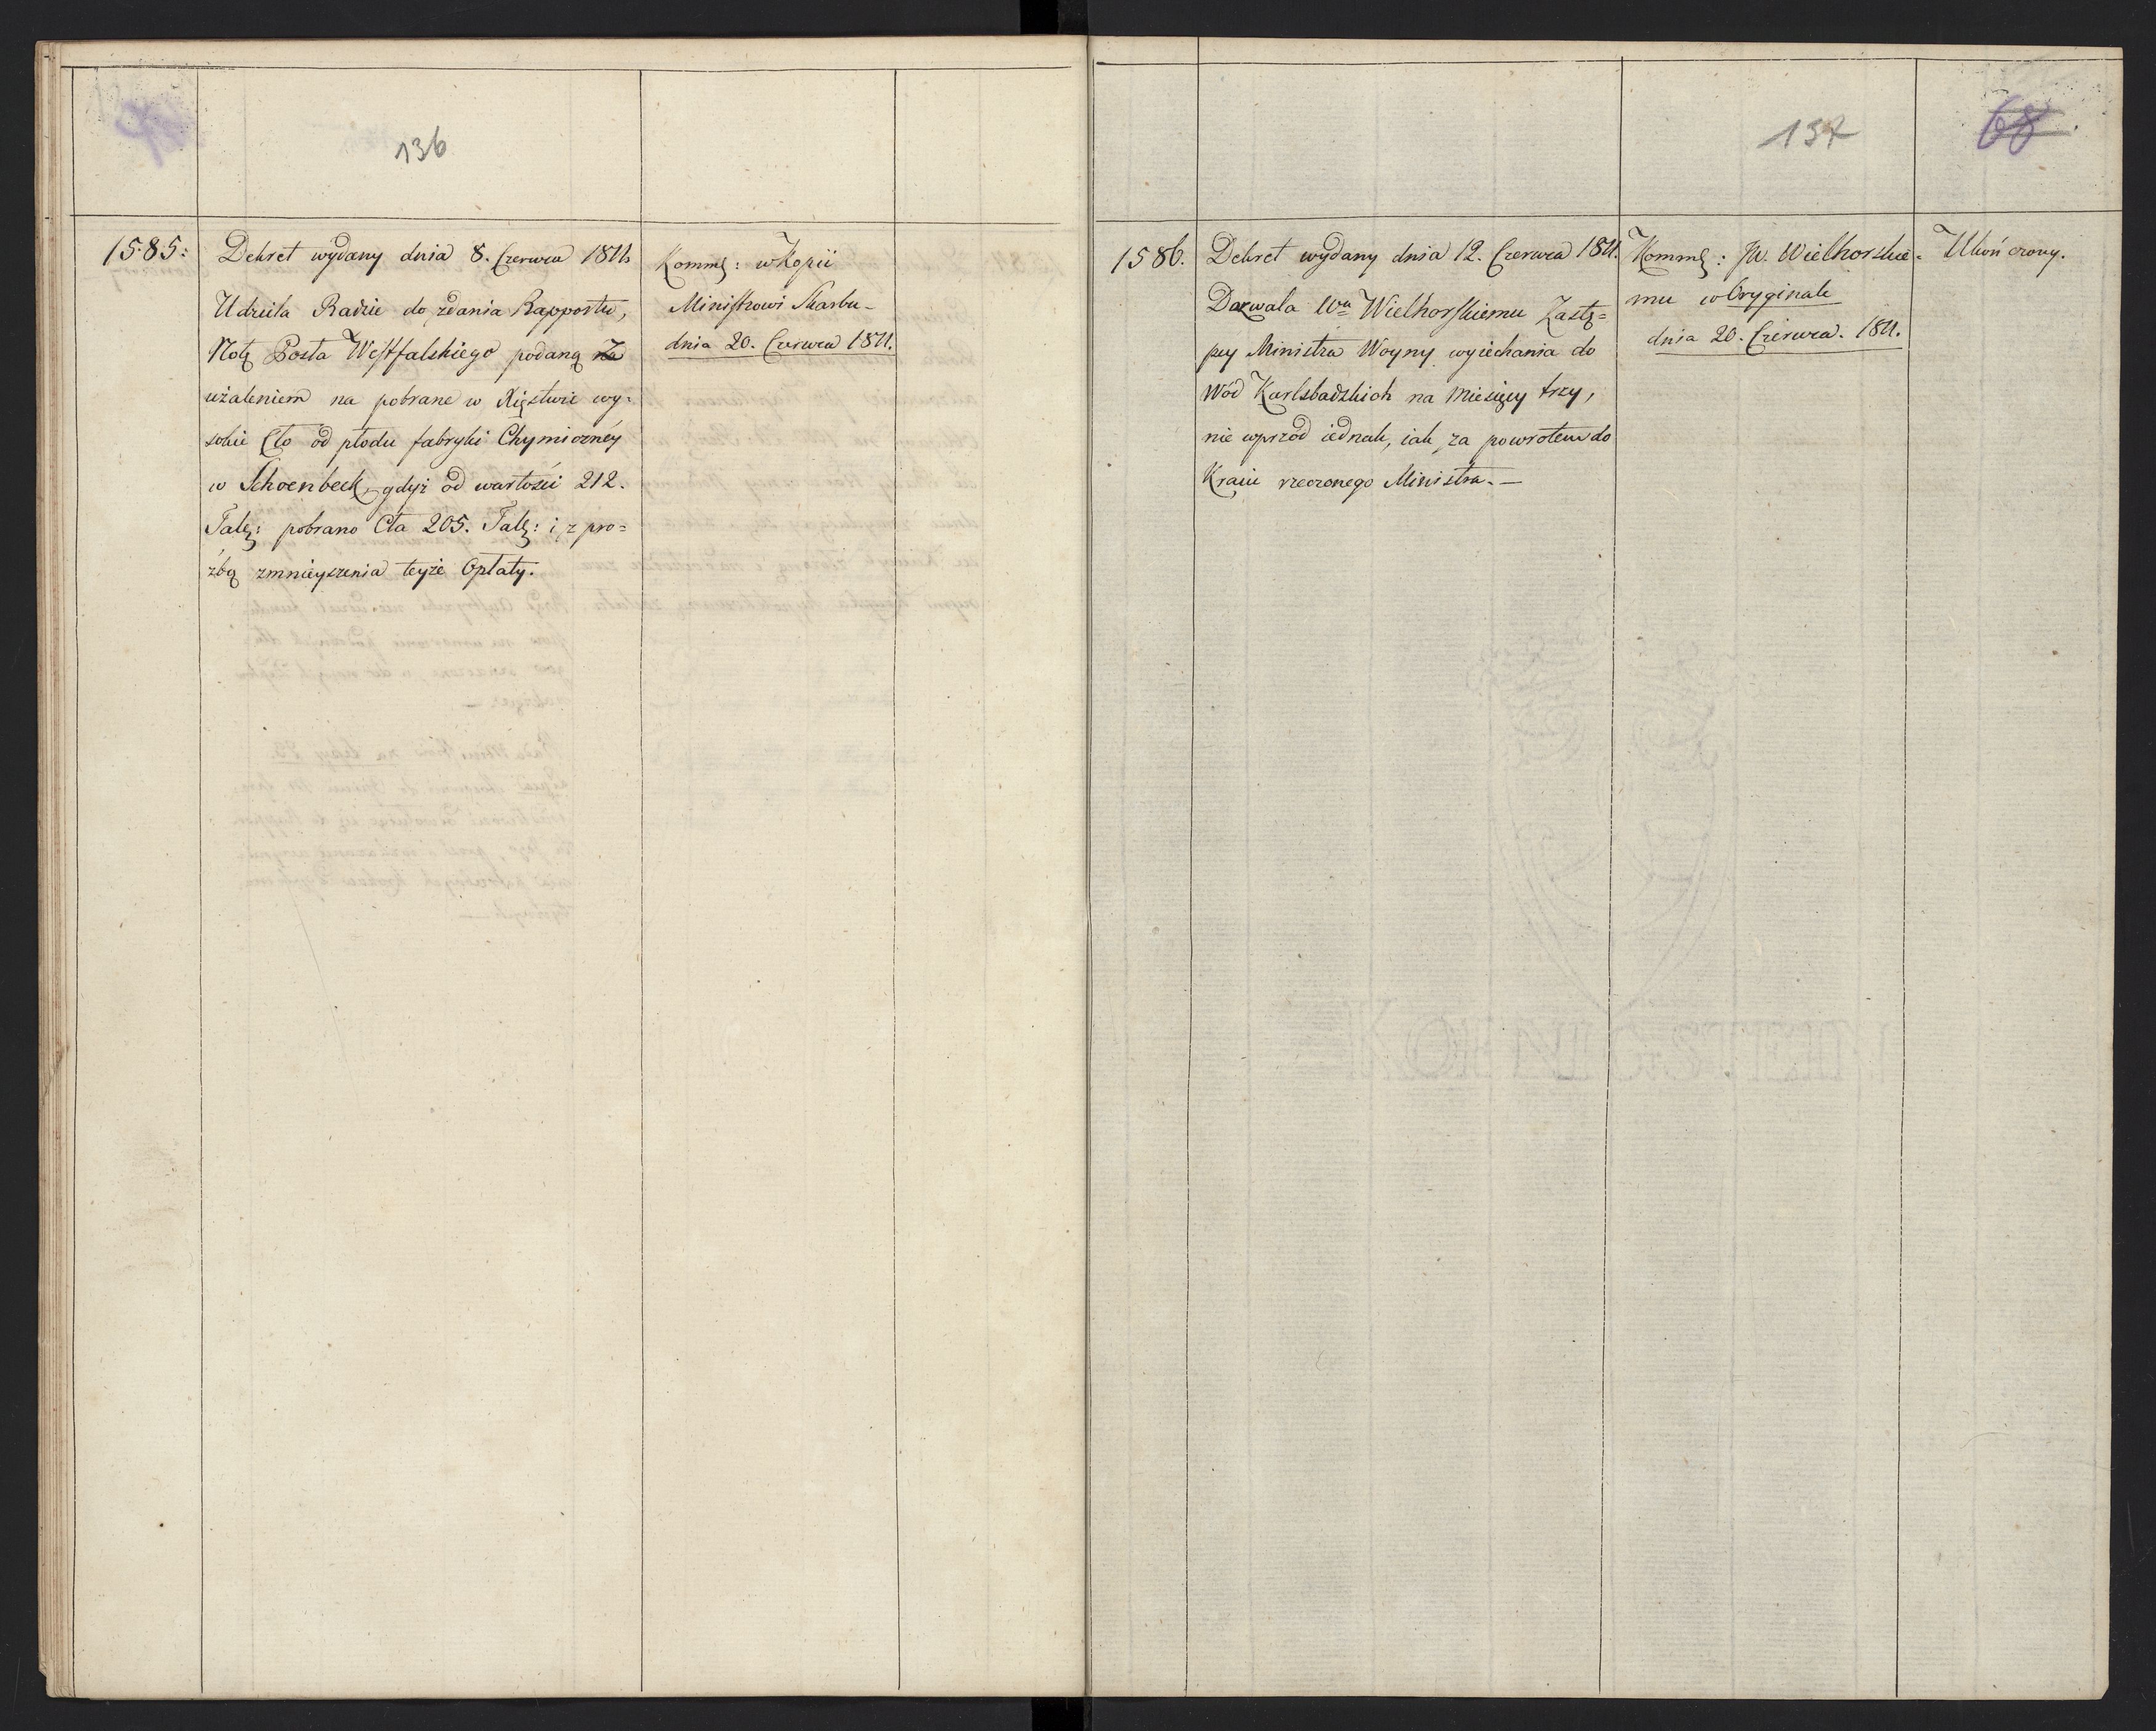 136
1585:
Dekret wydany dnia 8. Czerwca 1811.
Udziela Radzie do zdania Rapportu,
Notę Posła Westfalskiego podaną za
użaleniem na pobrane w Xięstwie wy=
sokie Cło od płodu fabryki Chymiczney
w Schoenbeck, gdyż od wartości 212.
Talą: pobrano Cła 205. Talą: i z pro=
źbą zmnieyszenia teyże Opłaty.
Kommę: w Kopii
Ministrowi Skarbu-
dnia 20. Czerwca 1811.
137
68
1586.
Dekret wydany dnia 12. Czerwca 1811.
Dozwala Wu Wielhorskiemu Zastę=
pcy Ministra Woyny wyiechania do
Wód Karlsbadzkich na Miesięcy trzy,
nie wprzód iednak, iak za powrotem do
Kraiu rzeczonego Ministra. —
Kommę: JW. Wielhorskie-
mu w Oryginale
dnia 20. Czerwca. 1811.
Ukończony.